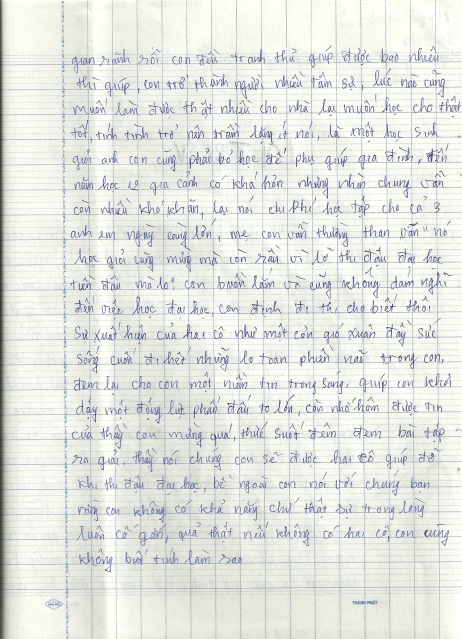 gian rãnh rỗi con đều tranh thủ giúp được bao nhiêu
thì giúp, con trở thành người nhiều tâm sự, lúc nào cũng
muốn làm được thật nhiều cho nhà, lại muốn học cho thật
tốt, tính tình trở nên trầm lặng ít nói, là một học sinh
giỏi anh con cũng phải bỏ học để phụ giúp gia đình, đến
năm học 12 gia cảnh có khá hơn nhưng nhìn chung vẫn
còn nhiều khó khăn, lại nói chi phí học tập cho cả 3
anh em ngày càng lớn, mẹ con vẫn thường than vãn "nó
học giỏi cũng mừng mà còn rầu vì lỡ thi đậu đại học
tiền đâu mà lo" con buồn lắm và cũng không dám nghĩ
đến việc học đại học, con định đi thi cho biết thôi
Sự xuất hiện của hai cô như một cơn gió xuân đầy sức
sống cuốn đi hết những lo toan phiền não trong con,
đem lại cho con một niềm tin trong sáng, giúp con khơi
dậy một động lực phấn đấu to lớn, còn nhớ hôm được tin
của thầy con mừng quá, thức suốt đêm đem bài tập
ra giải, thầy nói chung con sẽ được hai cô giúp đỡ
khi thi đậu đại học, bề ngoài con nói với chúng bạn
rằng con không có khả năng chứ thật sự trong lòng
luôn cố gắn, quả thật nếu không có hai cô, con cũng
không biết tính làm sao
THÀNH PHÁT